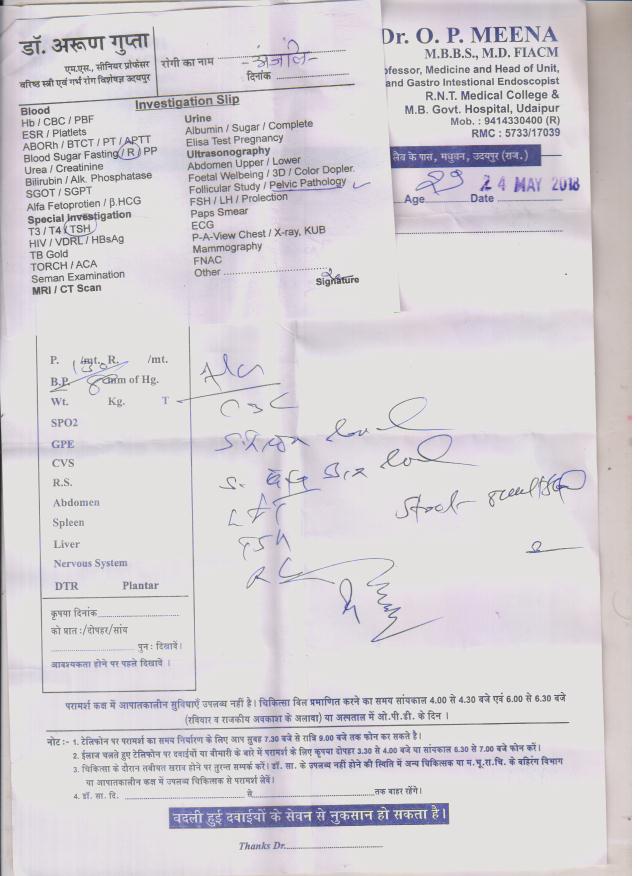 डॉ. अरूण गुप्ता
एम.एस., सीनियर प्रोफेसर
वरिष्ठ स्त्री एवं गर्भ रोग विशेषज्ञ उदयपुर
रोगी का नाम अंजलि
दिनांक
Investigation Slip
Blood
Hb / CBC / PBF
ESR / Platlets
ABORh / BTCT / PT / APTT
Blood Sugar Fasting / R / PP
Urea / Creatinine
Bilirubin / Alk. Phosphatase
SGOT / SGPT
Alfa Fetoprotien / β.HCG
Special Investigation
T3 / T4 / TSH
HIV / VDRL / HBsAg
TB Gold
TORCH / ACA
Seman Examination
MRI / CT Scan
Urine
Albumin / Sugar / Complete
Elisa Test Pregnancy
Ultrasonography
Abdomen Upper / Lower
Foetal Welbeing / 3D / Color Dopler.
Follicular Study / Pelvic Pathology
FSH / LH / Prolection
Paps Smear
ECG
P-A-View Chest / X-ray, KUB
Mammography
FNAC
Other
Signature
Dr. O. P. MEENA
M.B.B.S., M.D. FIACM
ofessor, Medicine and Head of Unit,
and Gastro Intestional Endoscopist
R.N.T. Medical College &
M.B. Govt. Hospital, Udaipur
Mob. : 9414330400 (R)
RMC : 5733/17039
लैव के पास, मधुवन, उदयपुर (राज.)
Age 23 Date 24 MAY 2018
P. /mt. R. /mt.
B.P. mm of Hg.
Wt. Kg. T
SPO2
GPE
CVS
R.S.
Abdomen
Spleen
Liver
Nervous System
DTR Plantar
CBC
LFT
TSH
कृपया दिनांक
को प्रातः/दोपहर/सांय
पुनः दिखावें।
आवश्यकता होने पर पहले दिखावें ।
परामर्श कक्ष में आपातकालीन सुविधाएँ उपलब्ध नहीं है। चिकित्सा बिल प्रमाणित करने का समय सांयकाल 4.00 से 4.30 बजे एवं 6.00 से 6.30 बजे
(रविवार व राजकीय अवकाश के अलावा) या अस्पताल में ओ.पी.डी. के दिन ।
नोट :- 1. टेलिफोन पर परामर्श का समय निर्धारण के लिए आप सुबह 7.30 बजे से रात्रि 9.00 बजे तक फोन कर सकते है।
2. ईलाज चलते हुए टेलिफोन पर दवाईयों या बीमारी के बारे में परामर्श के लिए कृपया दोपहर 3.30 से 4.00 बजे या सांयकाल 6.30 से 7.00 बजे फोन करें।
3. चिकित्सा के दौरान तबीयत खराब होने पर तुरन्त सम्पर्क करें। डॉ. सा. के उपलब्ध नहीं होने की स्थिति में अन्य चिकित्सक या म.भू.रा.चि. के बहिरंग विभाग
या आपातकालीन कक्ष में उपलब्ध चिकित्सक से परामर्श लेवें।
4. डॉ. सा. दि. से तक बाहर रहेंगे।
बदली हुई दवाईयों के सेवन से नुकसान हो सकता है।
Thanks Dr.